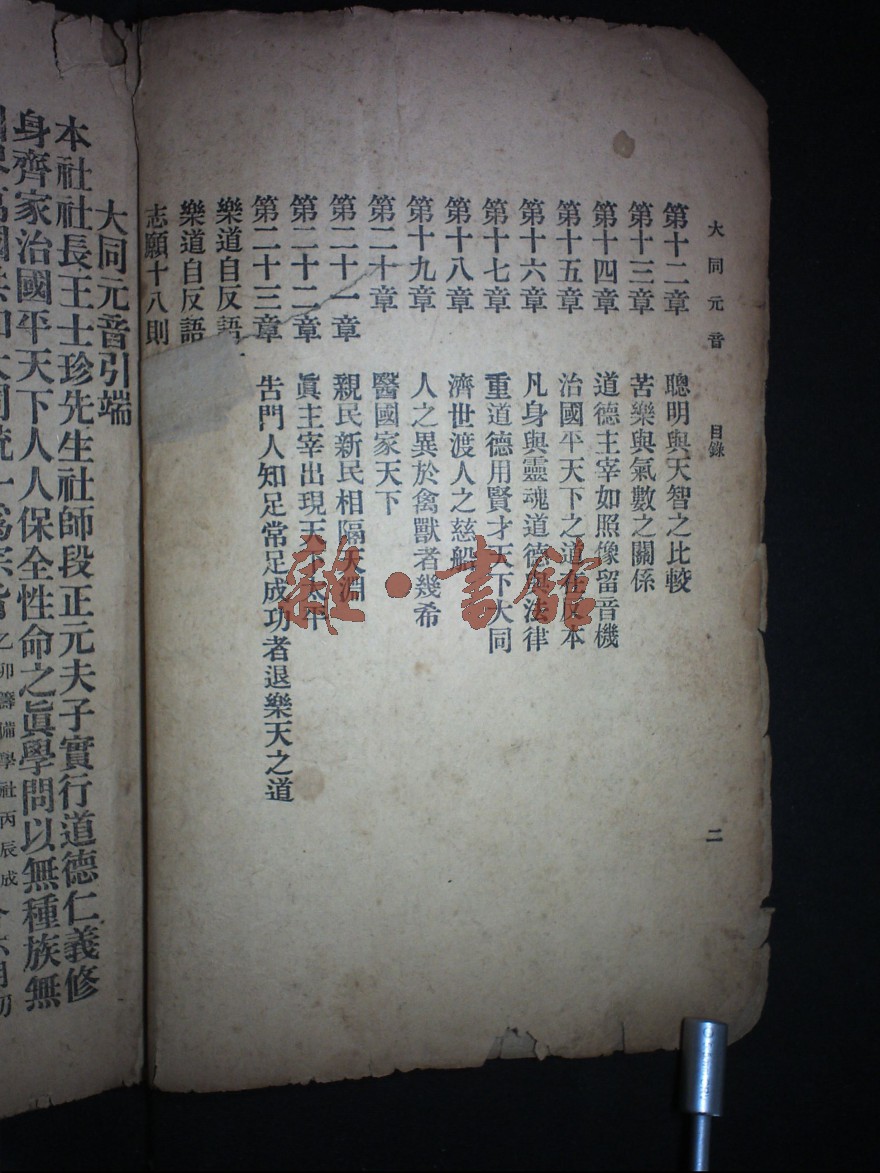 大同元音 目錄 二
第十二章 聰明與天智之比較
第十三章 苦樂與氣數之關係
第十四章 道德主宰如照像留音機
第十五章 治國平天下之道在反本
第十六章 凡身與靈魂道德與法律
第十七章 重道德用賢才天下大同
第十八章 濟世渡人之慈船
第十九章 人之異於禽獸者幾希
第二十章 醫國家天下
第二十一章 親民新民相隔天淵
第二十二章 眞主宰出現天下太平
第二十三章 吿門人知足常足成功者退樂天之道
樂道自反語
樂道自反語
志願十八則
大同元音引端
本社社長王士珍先生社師段正元夫子實行道德仁義修
身齊家治國平天下人人保全性命之眞學問以無種族無
國界萬國共和大同統一爲宗旨乙卯籌備學社丙辰成
雜·書館